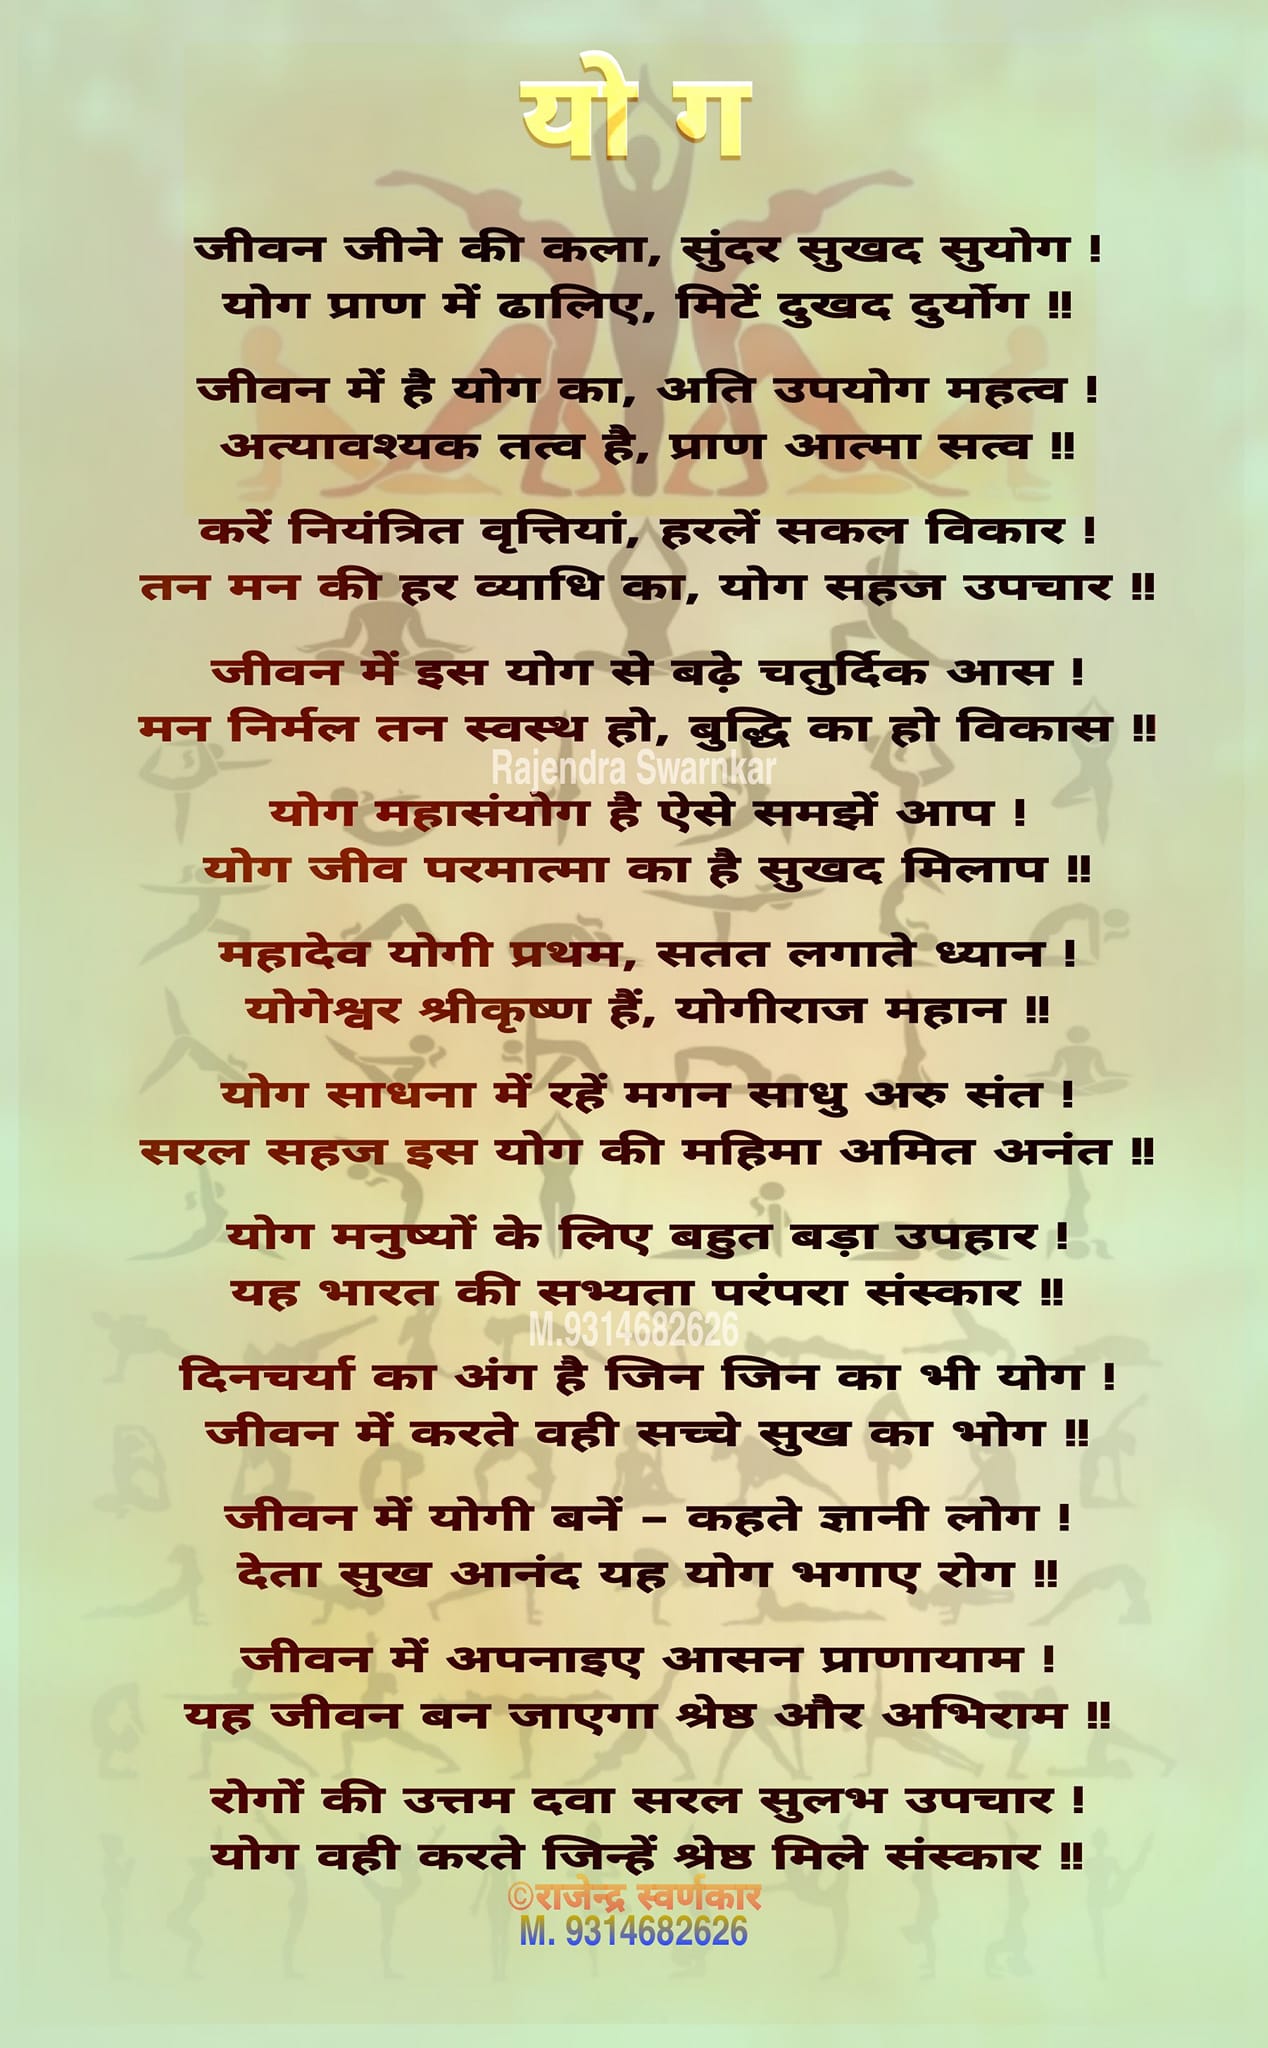 यो ग
जीवन जीने की कला, सुंदर सुखद सुयोग !
योग प्राण में ढालिए, मिटें दुखद दुर्योग !!
जीवन में है योग का, अति उपयोग महत्व !
अत्यावश्यक तत्व है, प्राण आत्मा सत्व !!
करें नियंत्रित वृत्तियां, हरलें सकल विकार !
तन मन की हर व्याधि का, योग सहज उपचार !!
जीवन में इस योग से बढ़े चतुर्दिक आस !
मन निर्मल तन स्वस्थ हो, बुद्धि का हो विकास !!
Rajendra Swarnkar
योग महासंयोग है ऐसे समझें आप !
योग जीव परमात्मा का है सुखद मिलाप !!
महादेव योगी प्रथम, सतत लगाते ध्यान !
योगेश्वर श्रीकृष्ण हैं, योगीराज महान !!
योग साधना में रहें मगन साधु अरु संत !
सरल सहज इस योग की महिमा अमित अनंत !!
योग मनुष्यों के लिए बहुत बड़ा उपहार !
यह भारत की सभ्यता परंपरा संस्कार !!
M.9314682626
दिनचर्या का अंग है जिन जिन का भी योग !
जीवन में करते वही सच्चे सुख का भोग !!
जीवन में योगी बनें – कहते ज्ञानी लोग !
देता सुख आनंद यह योग भगाए रोग !!
जीवन में अपनाइए आसन प्राणायाम !
यह जीवन बन जाएगा श्रेष्ठ और अभिराम !!
रोगों की उत्तम दवा सरल सुलभ उपचार !
योग वही करते जिन्हें श्रेष्ठ मिले संस्कार !!
©राजेन्द्र स्वर्णकार
M. 9314682626